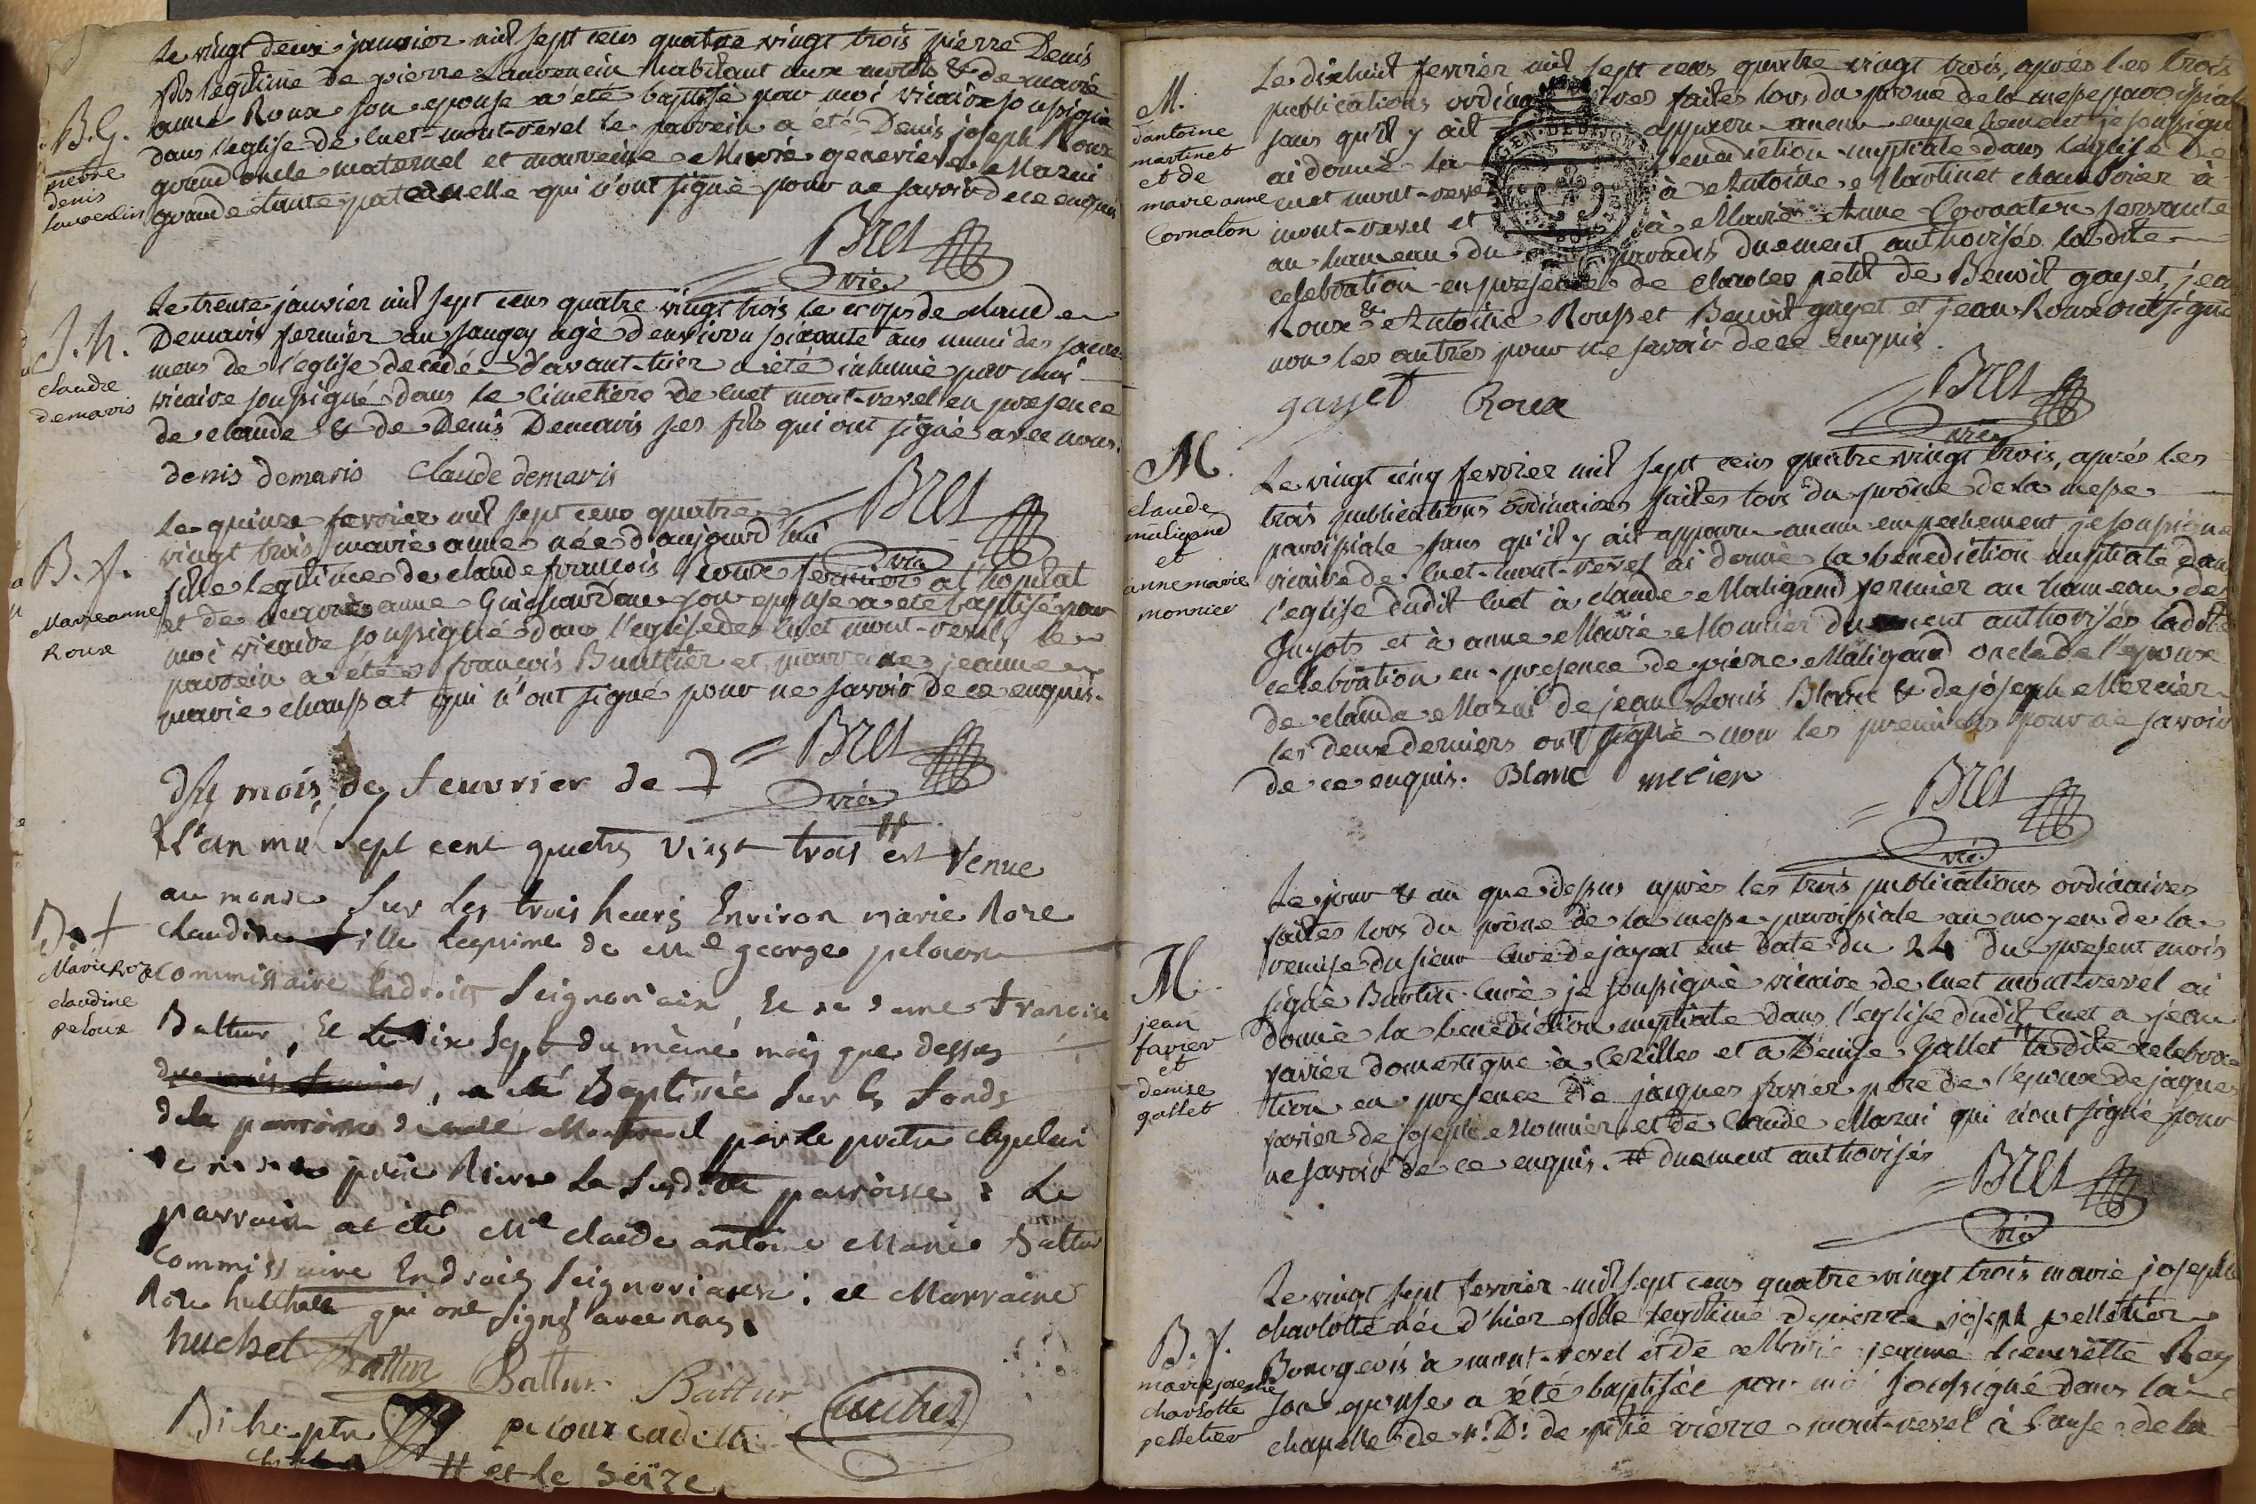 Le vingt deux janvier mil sept cens quatre vingt trois pierre Denis
fils legitime de pierre Lauvencin habitant aux & de marie
anne Roux son epouse a été baptisé par moi vicaire soussigné
dans l'eglise de cuet-mont-revel le parrein a eté Denis joseph Roux
grand oncle maternel et marreine Marie genevieve Mazui
grande tante paternelle qui n'ont signé pour ne savoir de ce enquis
B.G.
pierre
denis
Bret
vic.
Le trente janvier mil sept cens quatre vingt trois le corps de claude
Demaris fermier au saugey agé d'environ soixante ans muni des sacre-
mens de l'eglise decedé d'avant-hier a été inhumé par moi
vicaire soussigné dans le cimetiere de cuet mont-revel en presence
de claude & de Denis Demaris ses fils qui ont signé avec nous.
J.h.
claude
demaris
denis demaris Claude demaris
Bret
vic
Le quinze fevrier mil sept cens quatre
vingt trois marie anne née d'aujourd'hui
fille legitime de claude françois roux fermier a l'hopital
et de anne son epouse a eté baptisé par
moi vicaire soussigné dans l'eglise de cuet mont-revel le
parrein a été françois Buathier et marreine jeanne
marie chaussat qui n'ont signé pour ne savoir de ce enquis.
B. f.
Marie anne
Roux
Bret
vic.
Du mois de feuvrier de
L'an mil sept cent quatre vingt trois # est venue
au monde sur les trois heures Environ marie Roze
claudine fille legitime de Me george peloux
commissaire En droits seignoriaux, Et de dame françoise
Battur, Et le dix sept du même mois que dessus
, a été Baptisée sur les fonds
de la parroisse de Montrevel par le pretre chapelain
la susditte parroisse : Le
parrain at été Me claude antoine Marie Battur
commissaire En droits seignoriaux : et Marraine
Roze huchet qui ont signé avec nous.
B. f
Marie Roze
claudine
peloux
huchet Battur Battur Battur
Biche ptre peloux cadette huchet
# et le seize
M.
d'antoine
martinet
et de
marie anne
Cornaton
Le dixhuit fevrier mil sept cens quatre vingt trois, après les trois
publications ordinaires faites lors du prone de la messe paroissiale
sans qu'il y ait apparu aucun empechement je soussigné
ai donné la benediction nuptiale dans l'eglise de
cuet mont-revel à Antoine Martinet à
mont-revel et à Marie Anne Cornaton servante
au hameau du paradis duement authorisés ladite
celebration en presence de charles petit de Benoit gayet, jean
Roux & Antoine Rousset Benoit gayet et jean Roux ont signé
non les autres pour ne savoir de ce enquis.
gayet Roux
Bret
vic
M.
claude
maligand
et
anne marie
monnier
Le vingt cinq fevrier mil sept cens quatre vingt trois, après les
trois publications ordinaires faites lors du prône de la messe
paroissiale sans qu'il y ait apparu aucun empechement je soussigné
vicaire de cuet-mont-revel ai donné la benediction nuptiale dans
l'eglise dudit cuet à claude Maligand fermier au hameau des
guyots et à anne Marie Monnier duement authorisés ladite
celebration en presence de pierre Maligand oncle de l'epoux
de claude Mazui de jean Louis Blanc & de joseph Mercier
les deux derniers ont signé non les premiers pour ne savoir
de ce enquis. Blanc mercier
Bret
vic.
Le jour & an que dessus après les trois publications ordinaires
faites lors du prône de la messe paroissiale au moyen de la
remise du sieur curé de jayat en date du 24 du present mois
signé Burtin curé je soussigné vicaire de cuet montrevel ai
donné la benediction nuptiale dans l'eglise dudit cuet a jean
favier domestique à Cezilles et a Denise Gallet # ladite celebra
tion en presence de jaques favier pere de l'epoux de jaques
favier de joseph Monnier et de Claude Mazui qui n'ont signé pour
ne savoir de ce enquis. # duement authorisés
M.
jean
favier
et
denise
gallet
Bret
vic
Le vingt sept fevrier mil sept cens quatre vingt trois marie josephe
charlotte née d'hier fille legitime de pierre joseph pelletier
Bourgeois à mont-revel et de Marie jeanne henriette Rey
son epouse a été baptisée par moi soussigné dans la
chapelle de N. D. de pitié riere mont-revel à cause de la
B. f.
marie josephe
charlotte
pelletier